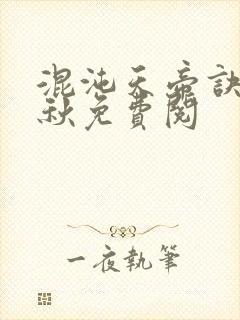 混沌天帝訣
秋免費閱
一夜執筆